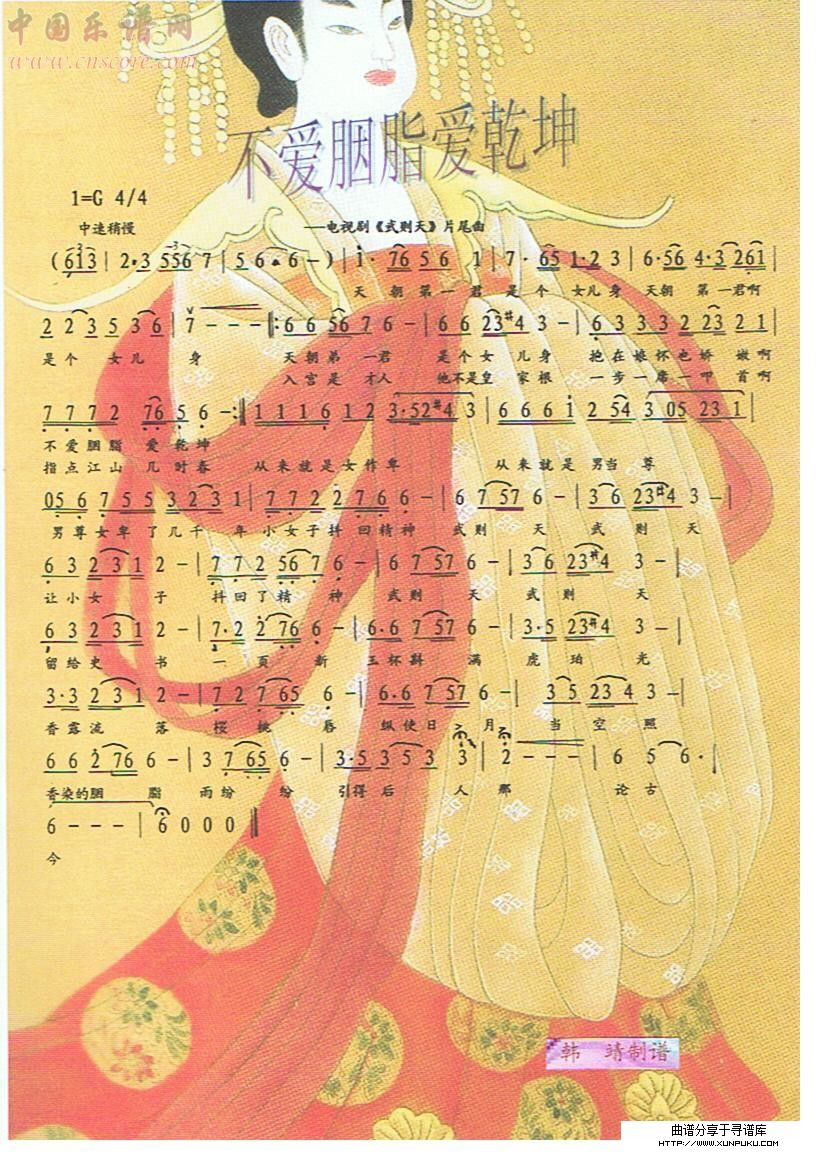 中国乐谱网
www.cnscore.com
不爱胭脂爱乾坤
1=G 4/4
中速稍慢
—电视剧《武则天》片尾曲
(613 | 2·3 556 7 | 5 6 6 6 -) | 1· 76 5 6 1 | 7· 65 1·2 3 | 6·56 4·3 261 |
天朝第一君 是个 女儿身 天朝 第一君啊
2 2 3 5 3 6 | 7 - - - |: 6 6 56 7 6 - | 6 6 23#4 3 - | 6 3 3 3 2 23 1 |
是个 女儿 身 天朝弟 一君 是个女 儿身 抱在娘怀也娇 嫩啊
入宫是 才人 他不是皇 家根 一步一席一叩 首啊
7 7 7 2 76 5 6 - :| 1 1 1 6 1 2 3·52#4 3 | 6 6 6 1 2 54 3 05 23 1 |
不爱胭脂 爱乾坤
指点江山 几时春 从来就是女作卑 从来就是男当 尊
05 6 7 5 5 3 2 3 1 | 7 7 2 2 7 6 6 - | 6 7 57 6 - | 3 6 23#4 3 - |
男尊女卑了几千 年 小女子抖回精神 武则 天 武则 天
6 3 2 3 1 2 - | 7 7 2 56 7 6 - | 6 7 57 6 - | 3 6 23#4 3 - |
让小女 子 抖回了精 神 武则 天 武则 天
6 3 2 3 1 2 - | 7·2 2 76 6 - | 6·6 7 57 6 - | 3·5 23#4 3 - |
留给史 书 一页新 玉杯斟 满 虎珀 光
3·3 2 3 1 2 - | 7 2 7 65 6 - | 6·6 7 57 6 - | 3 5 23 4 3 - |
香露流 落 桜桃 唇 纵使日 月 当空 照
6 6 2 76 6 - | 3 7 65 6 - | 3·5 3 5 3 3 | 2 - - - | 6 5 6 · |
香染的胭 脂 雨纷 纷 引得后 人 那 论古
6 - - - | 6 0 0 0 ‖
今
韩 靖制谱
曲谱分享于寻谱库
HTTP://WWW.XUNPUKU.COM